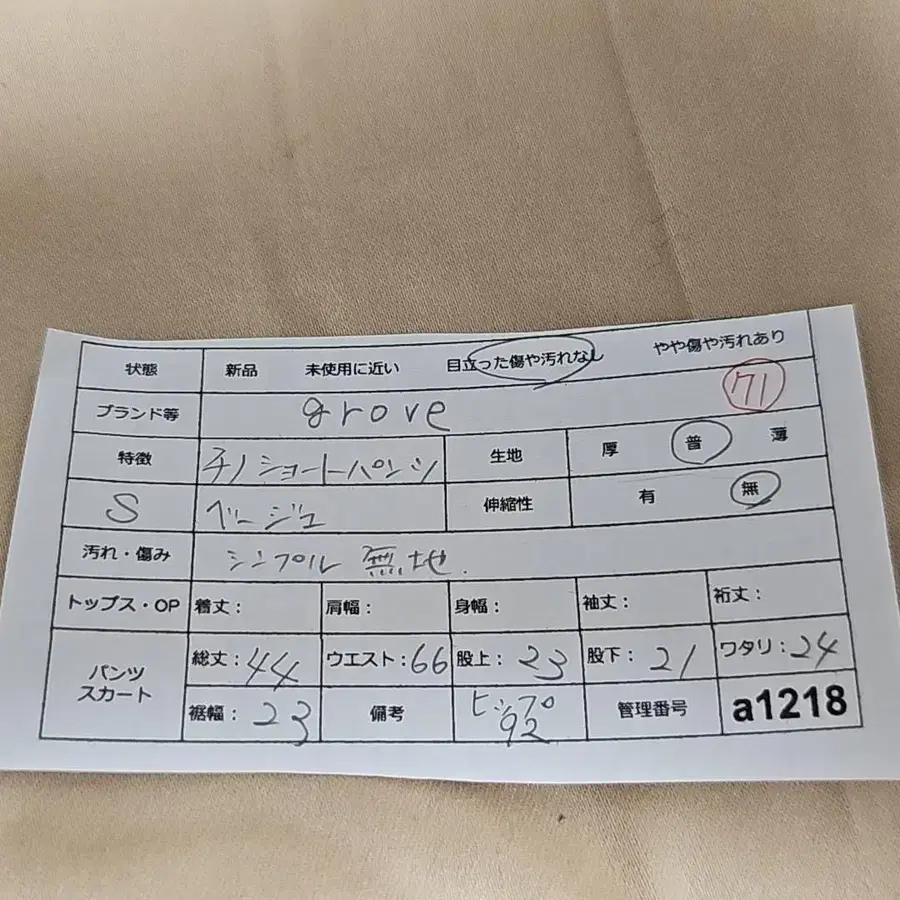 状態 新品 未使用に近い 目立った傷や汚れなし やや傷や汚れあり
ブランド等 grove 71
特徴 チノショートパンツ 生地 厚 普 薄
S ベージュ 伸縮性 有 無
汚れ・傷み シンプル 無地.
トップス・OP 着丈: 肩幅: 身幅: 袖丈: 裄丈:
パンツ スカート 総丈:44 ウエスト:66 股上:23 股下:21 ワタリ:24
裾幅:23 備考 ヒップ 92 管理番号 a1218